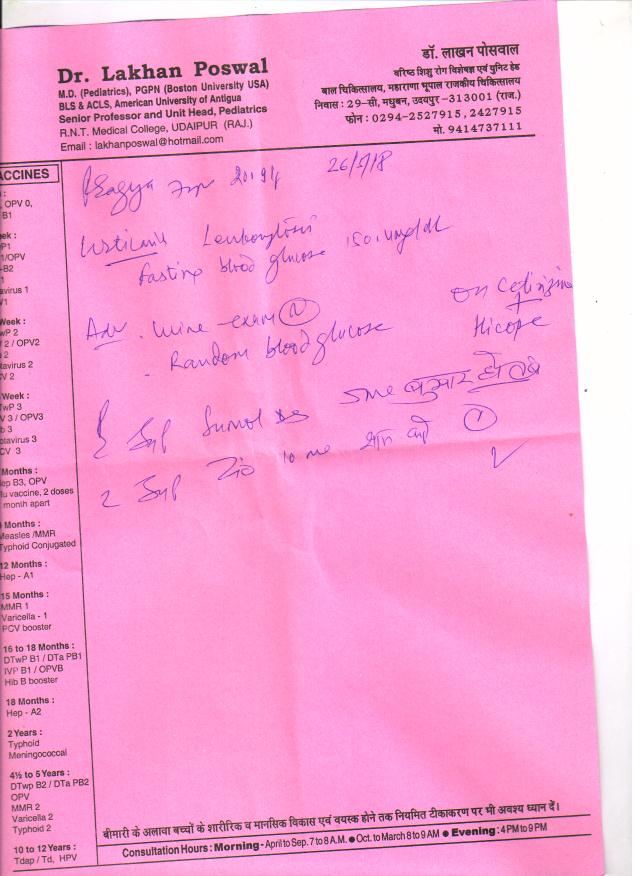 Dr. Lakhan Poswal
M.D. (Pediatrics), PGPN (Boston University USA)
BLS & ACLS, American University of Antigua
Senior Professor and Unit Head, Pediatrics
R.N.T. Medical College, UDAIPUR (RAJ.)
Email : lakhanposwal@hotmail.com
डॉ. लाखन पोसवाल
वरिष्ठ शिशु रोग विशेषज्ञ एवं युनिट हेड
बाल चिकित्सालय, महाराणा भूपाल राजकीय चिकित्सालय
निवास : 29-सी, मधुबन, उदयपुर -313001 (राज.)
फोन : 0294-2527915, 2427915
मो. 9414737111
ACCINES
, OPV 0,
B1
ek :
P1
1/OPV
-B2
1
avirus 1
V1
Week :
wP 2
2 / OPV2
2
tavirus 2
CV 2
Week :
TwP 3
V 3 / OPV3
b 3
otavirus 3
CV 3
Months :
ep B3, OPV
lu vaccine, 2 doses
month apart
Months :
Measles /MMR
Typhoid Conjugated
12 Months :
Hep - A1
15 Months :
MMR 1
Varicella - 1
PCV booster
16 to 18 Months :
DTwP B1 / DTa PB1
IVP B1 / OPVB
Hib B booster
18 Months :
Hep - A2
2 Years :
Typhoid
Meningococcal
4½ to 5 Years :
DTwp B2 / DTa PB2
OPV
MMR 2
Varicella 2
Typhoid 2
10 to 12 Years :
Tdap / Td, HPV
Leukocytosis
fasting blood glucose
Adv. urine - exam
- Random blood glucose
on
Hicope
Syp 5ml बुखार हो तब
2 Syp 10 ml शाम को
बीमारी के अलावा बच्चों के शारीरिक व मानसिक विकास एवं वयस्क होने तक नियमित टीकाकरण पर भी अवश्य ध्यान दें।
Consultation Hours : Morning - April to Sep. 7 to 8 A.M. ● Oct. to March 8 to 9 AM ● Evening : 4 PM to 9 PM